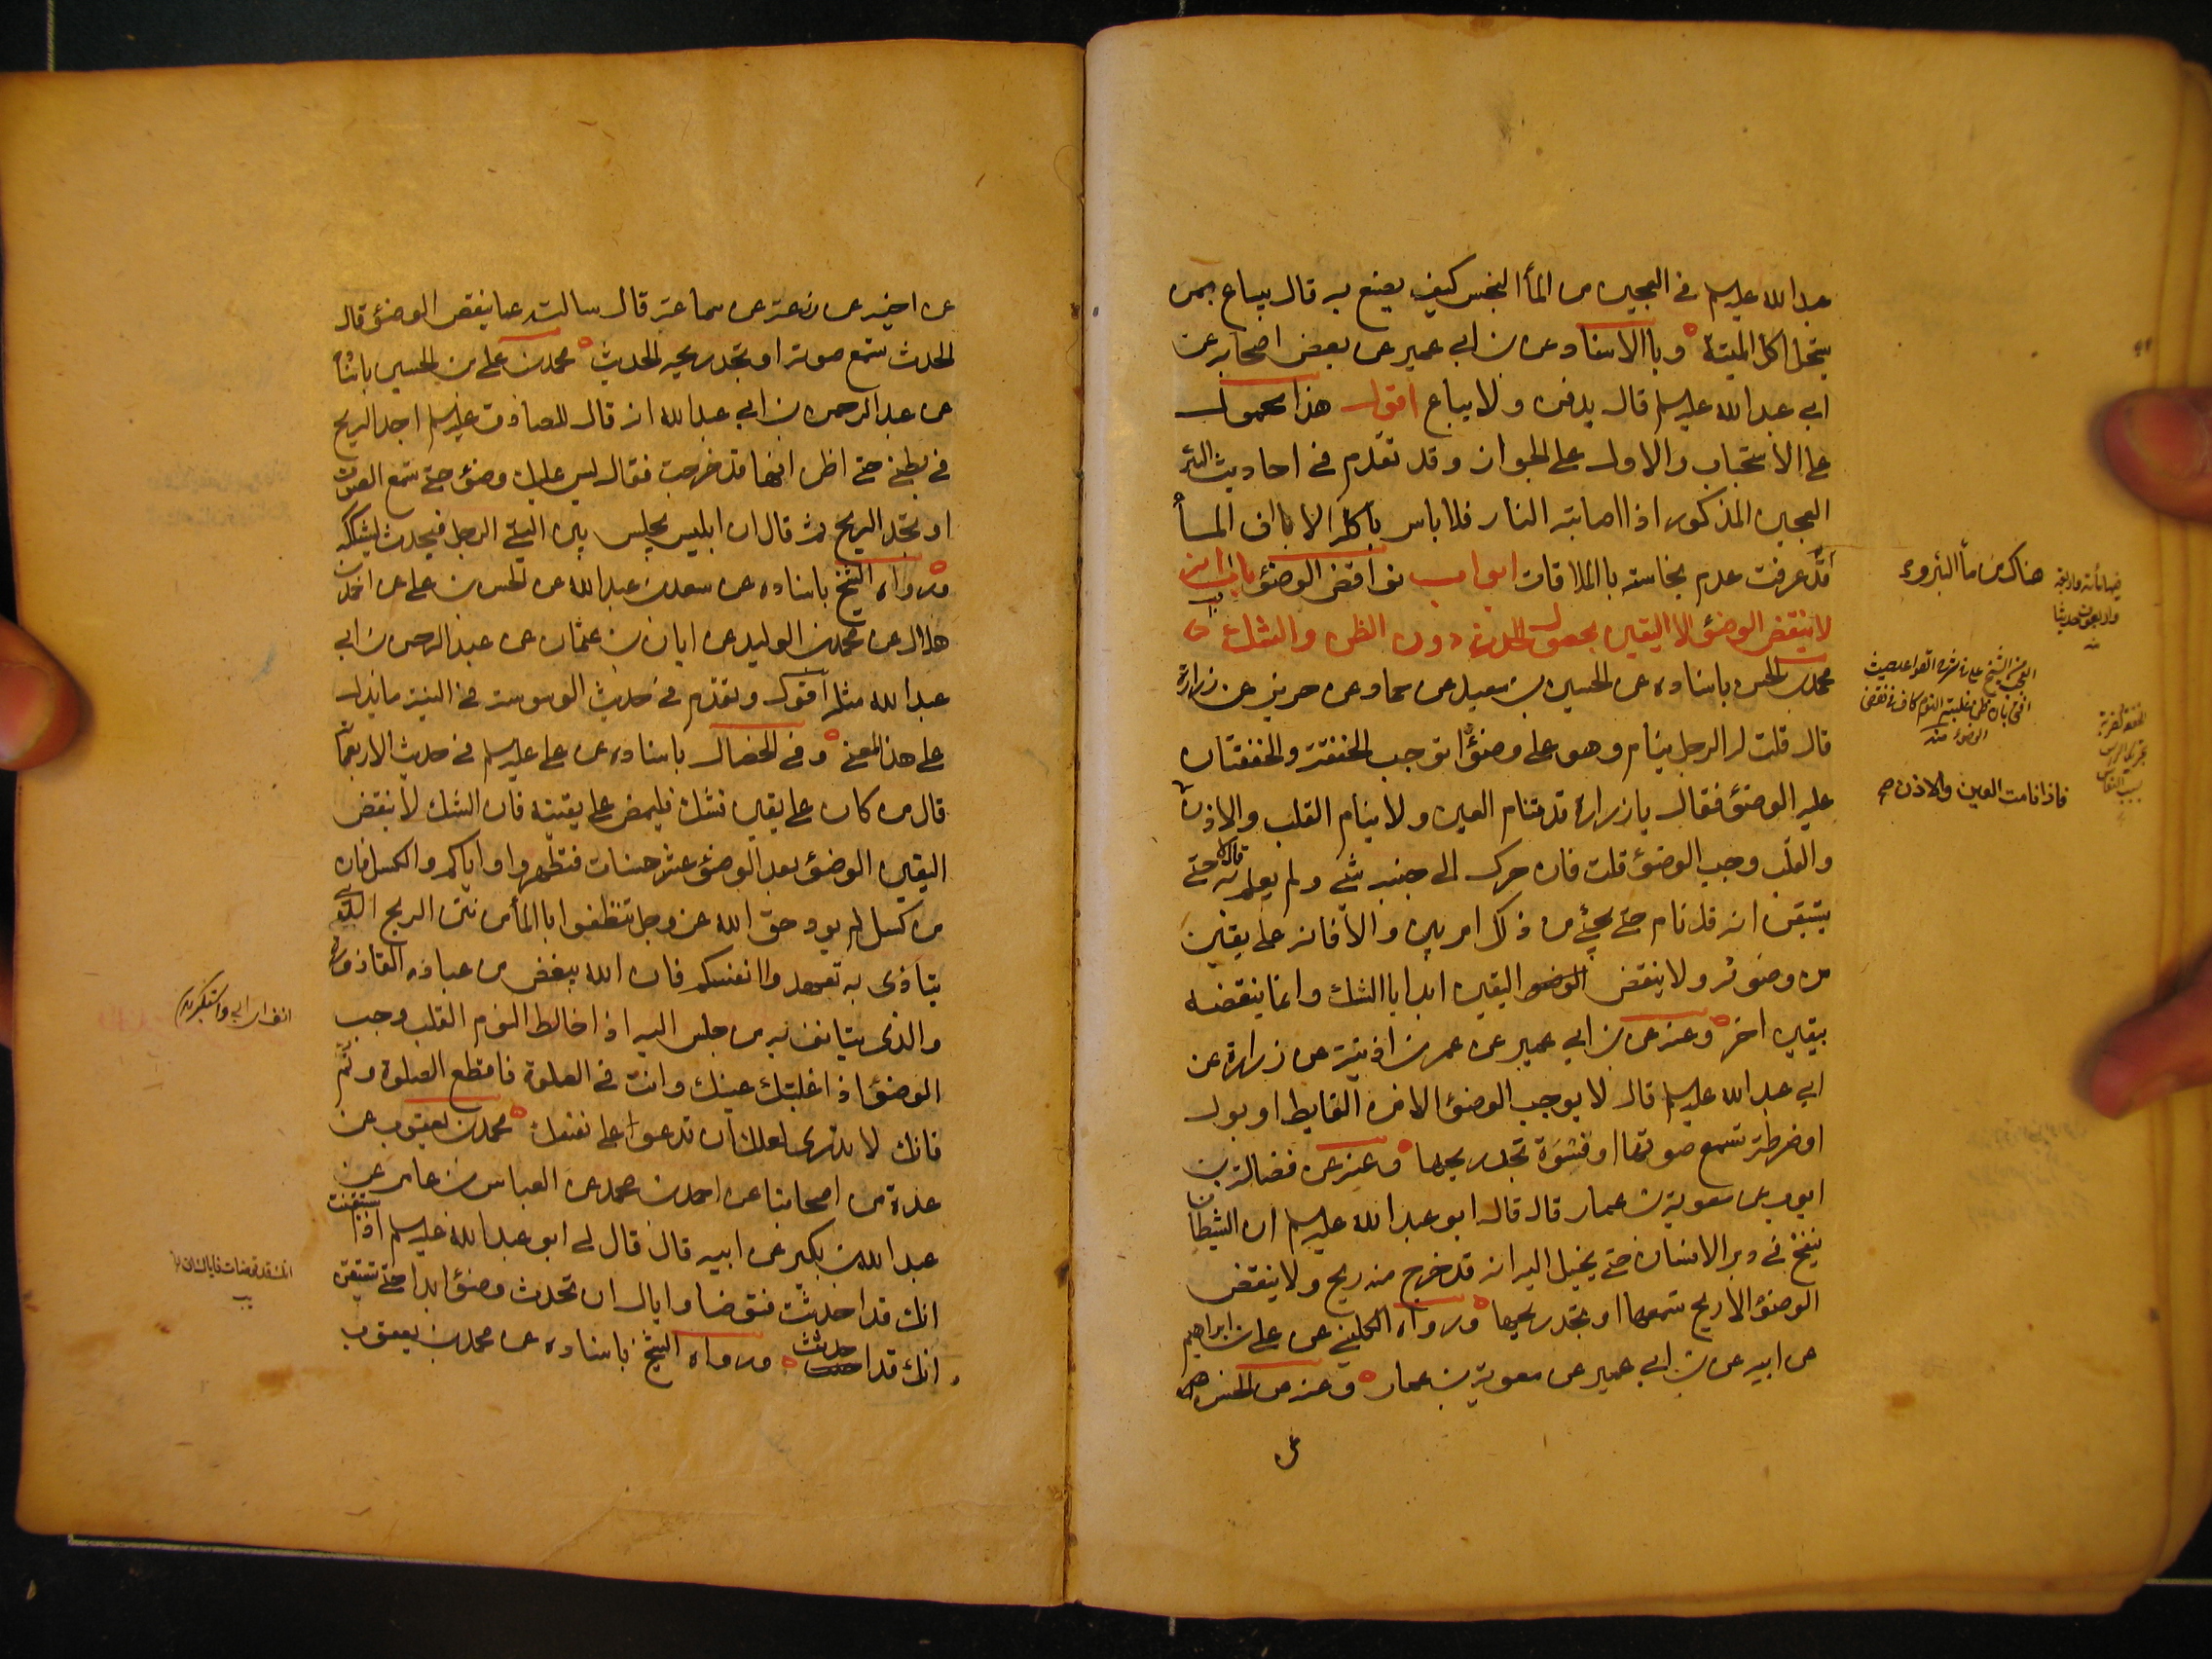 عبدالله علیهلم فی العجین من المأ النجس کیف یصنع به قال یباع ممن
یستحل اکل المیتة وباالاسناد عن بن ابی عمیر عن بعض اصحابه عن
ابی عبدالله علیهلم قال یدفن ولا یباع اقول هذا محمول
علی الاستحباب والاول علی الجواز وقد تقدم فی احادیث البئر
العجین المذکور اذا اصابته النار فلا باس باکله الا باف المسأ
قد عرفت عدم نجاسته باالملاقات ابواب نواقض الوضؤ باب انه
لا ینقض الوضؤ الا الیقین بحصول الحدث دون الظن والشک
محمد بن الحسن باسناده عن الحسین بن سعید عن حماد عن حریز عن زرارة
قال قلت له الرجل ینام وهو علی وضؤ اتوجب الخفقة والخفقتان
علیه الوضؤ فقال یا زرارة قد تنام العین ولا ینام القلب والاذن
والقلب وجب الوضؤ قلت فان حرک الی جنبه شئ ولم یعلم به قال لا حتی
یستیقن انه قد نام حتی یجئ من ذلک امر بین والا فانه علی یقین
من وضوئه ولا ینقض الوضو الیقین ابدا باالشک وانما ینقضه
بیقین اخر وعنه عن بن ابی عمیر عن عمر بن اذینة عن زرارة عن
ابی عبدالله علیهلم قال لا یوجب الوضؤ الا من الغایط او بول
او ضرطة تسمع صوتها او فسوة تجد ریحها وعنه عن فضالة بن
ایوب عن معویة بن عمار قال قال ابو عبدالله علیهلم ان الشیطان
ینفخ فی دبر الانسان حتی یخیل الیه انه قد خرج منه ریح ولا ینقض
الوضؤ الا ریح تسمعها او تجد ریحها ورواه الکلینی عن علی بن ابراهیم
عن ابیه عن بن ابی عمیر عن معویة بن عمار وعنه عن الحسن
هناک من مأ البئر وء
فاذا نامت العین والاذن صح
عن اخیه عن زرعة عن سماعة قال سالته عما ینقض الوضؤ قال
الحدث تسمع صوته او تجد ریحه الحدیث محمد بن علی بن الحسین باسنا
عن عبدالرحمن بن ابی عبدالله انه قال للصادق علیهلم اجد الریح
فی بطنی حتی اظن انها قد خرجت فقال لیس علیک وضؤ حتی تسمع الصوت
او تجد الریح ثم قال ان ابلیس یجلس بین الیتی الرجل فیحدث لیشککه
ورواه الشیخ باسناده عن سعد بن عبدالله عن الحسن بن علی عن احمد بن
هلال عن محمد بن الولید عن ابان بن عثمان عن عبدالرحمن بن ابی
عبدالله مثله اقول وتقدم فی حدیث الوسوسة فی النیة ما یدل
علی هذا المعنی وفی الخصال باسناده عن علی علیهلم فی حدیث الاربعمائة
قال من کان علی یقین فشک فلیمض علی یقینه فان الشک لا ینقض
الیقین الوضؤ بعد الوضؤ عشر حسنات فتطهروا وایاکم والکسل فان
من کسل لم یود حق الله عز وجل تنظفوا باالمأ من نتن الریح الذی
یتاذی به تعهدوا انفسکم فان الله یبغض من عباده القاذورة
الذی یتانف به من جلس الیه اذا خالط النوم القلب وجب
الوضؤ اذا غلبتک عینک وانت فی الصلوة فاقطع الصلوة ونم
فانک لا تدری لعلک ان تدعوا علی نفسک محمد بن یعقوب عن
عدة من اصحابنا عن احمد بن محمد عن العباس بن عامر عن
عبدالله بن بکیر عن ابیه قال قال لی ابو عبدالله علیهلم اذا استیقنت
انک قد احدثت فتوضا وایاک ان تحدث وضؤ ابدا حتی تستیقن
انک قد احدثت ورواه الشیخ باسناده عن محمد بن یعقوب